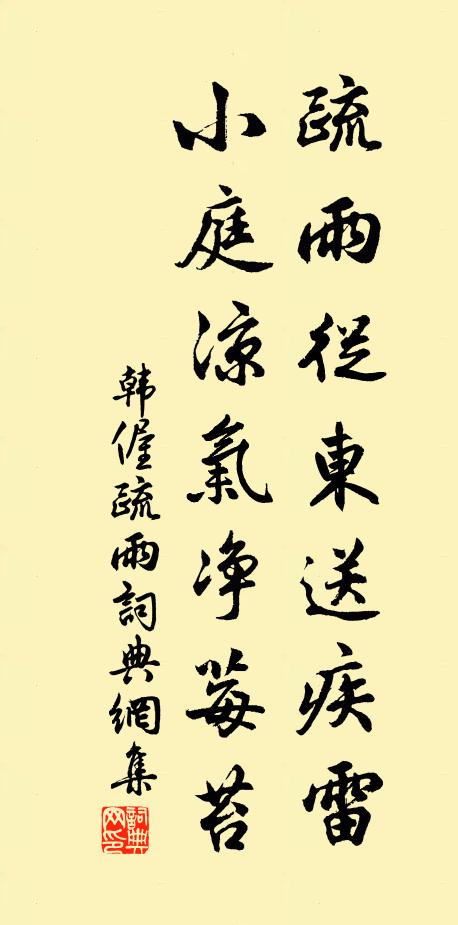 疏雨從東送疾雷
小庭涼氣净莓苔
韩偓疏雨詞典網集
詞典网印